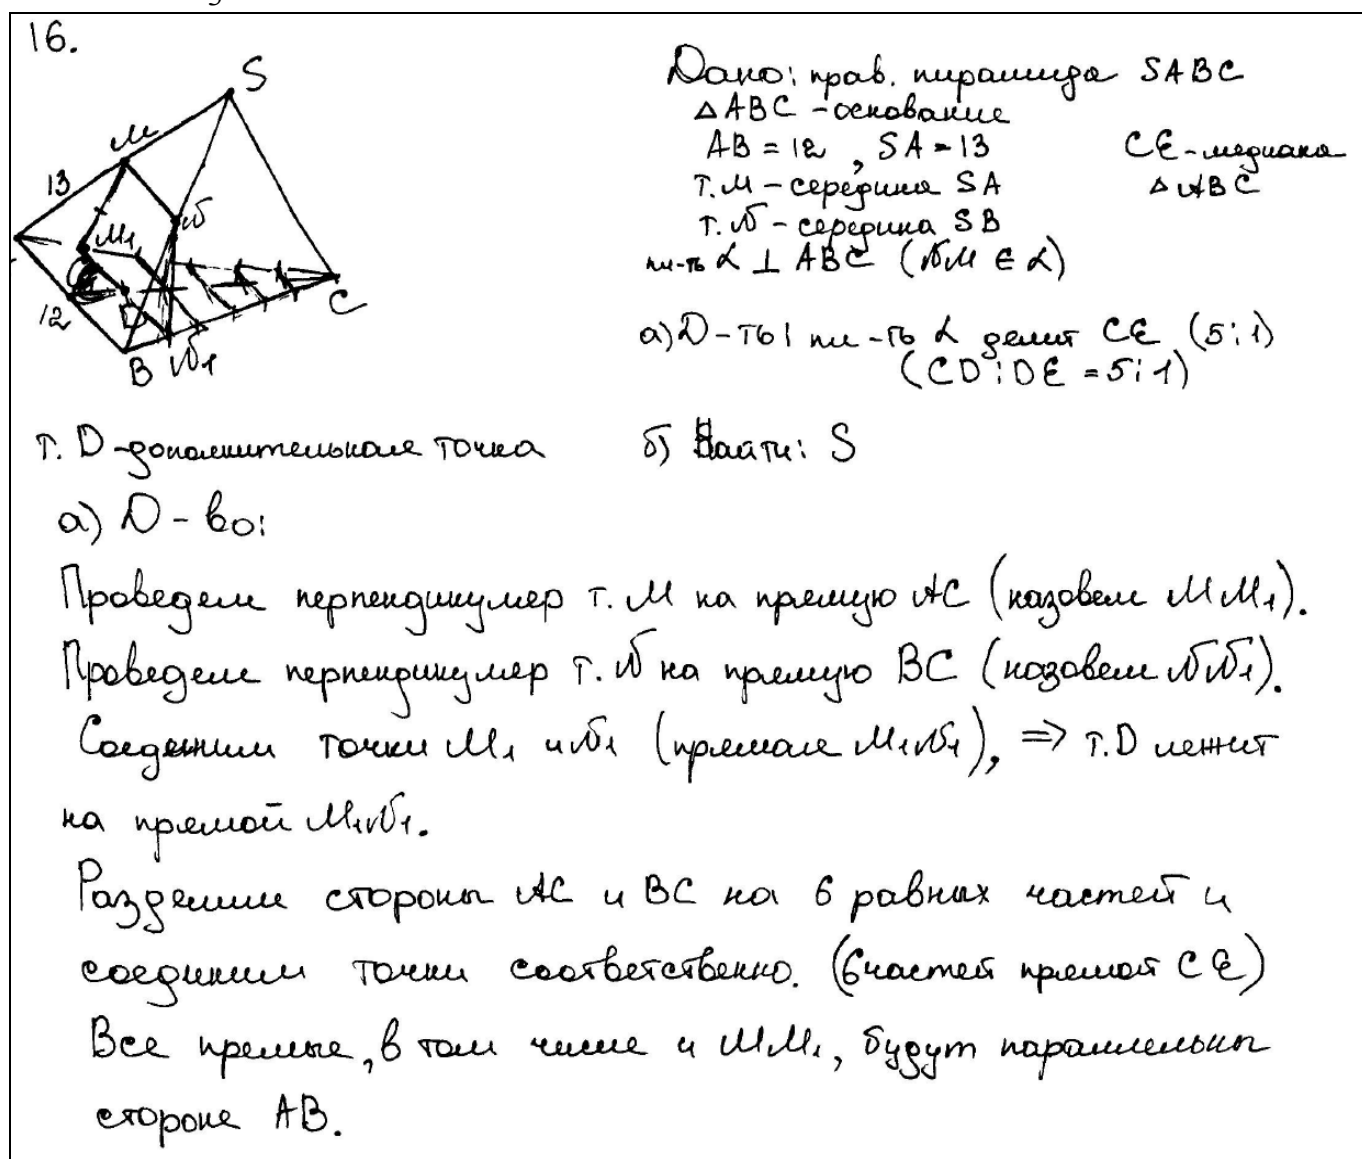 16.
S
M
13
N
M₁
E
12
D
B
N₁
C
Дано: прав. пирамида SABC
△ABC - основание
AB = 12, SA = 13
CE - медиана
△ABC
т. M - середина SA
т. N - середина SB
пл-ть α ⊥ ABC (NM ∈ α)
а) D-ть: пл-ть α делит CE (5:1)
(CD:DE = 5:1)
т. D - дополнительная точка
б) Найти: S
а) D-во:
Проведем перпендикуляр т. M на прямую AC (назовем MM₁).
Проведем перпендикуляр т. N на прямую BC (назовем NN₁).
Соединим точки M₁ и N₁ (прямая M₁N₁), => т. D лежит
на прямой M₁N₁.
Разделим стороны AC и BC на 6 равных частей и
соединим точки соответственно. (6 частей прямой CE)
Все прямые, в том числе и MM₁, будут параллельны
стороне AB.